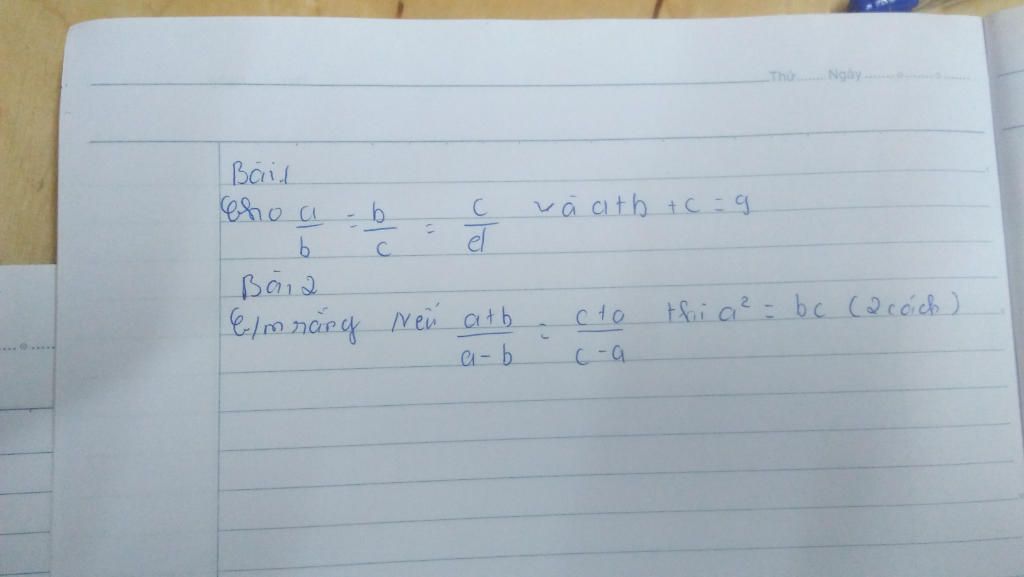 Thứ ...... Ngày ...................
Bài 1
Cho a/b = b/c = c/d và a+b+c = 9
Bài 2
C/m rằng Nếu a+b/a-b = c+a/c-a thì a² = bc (2 cách)